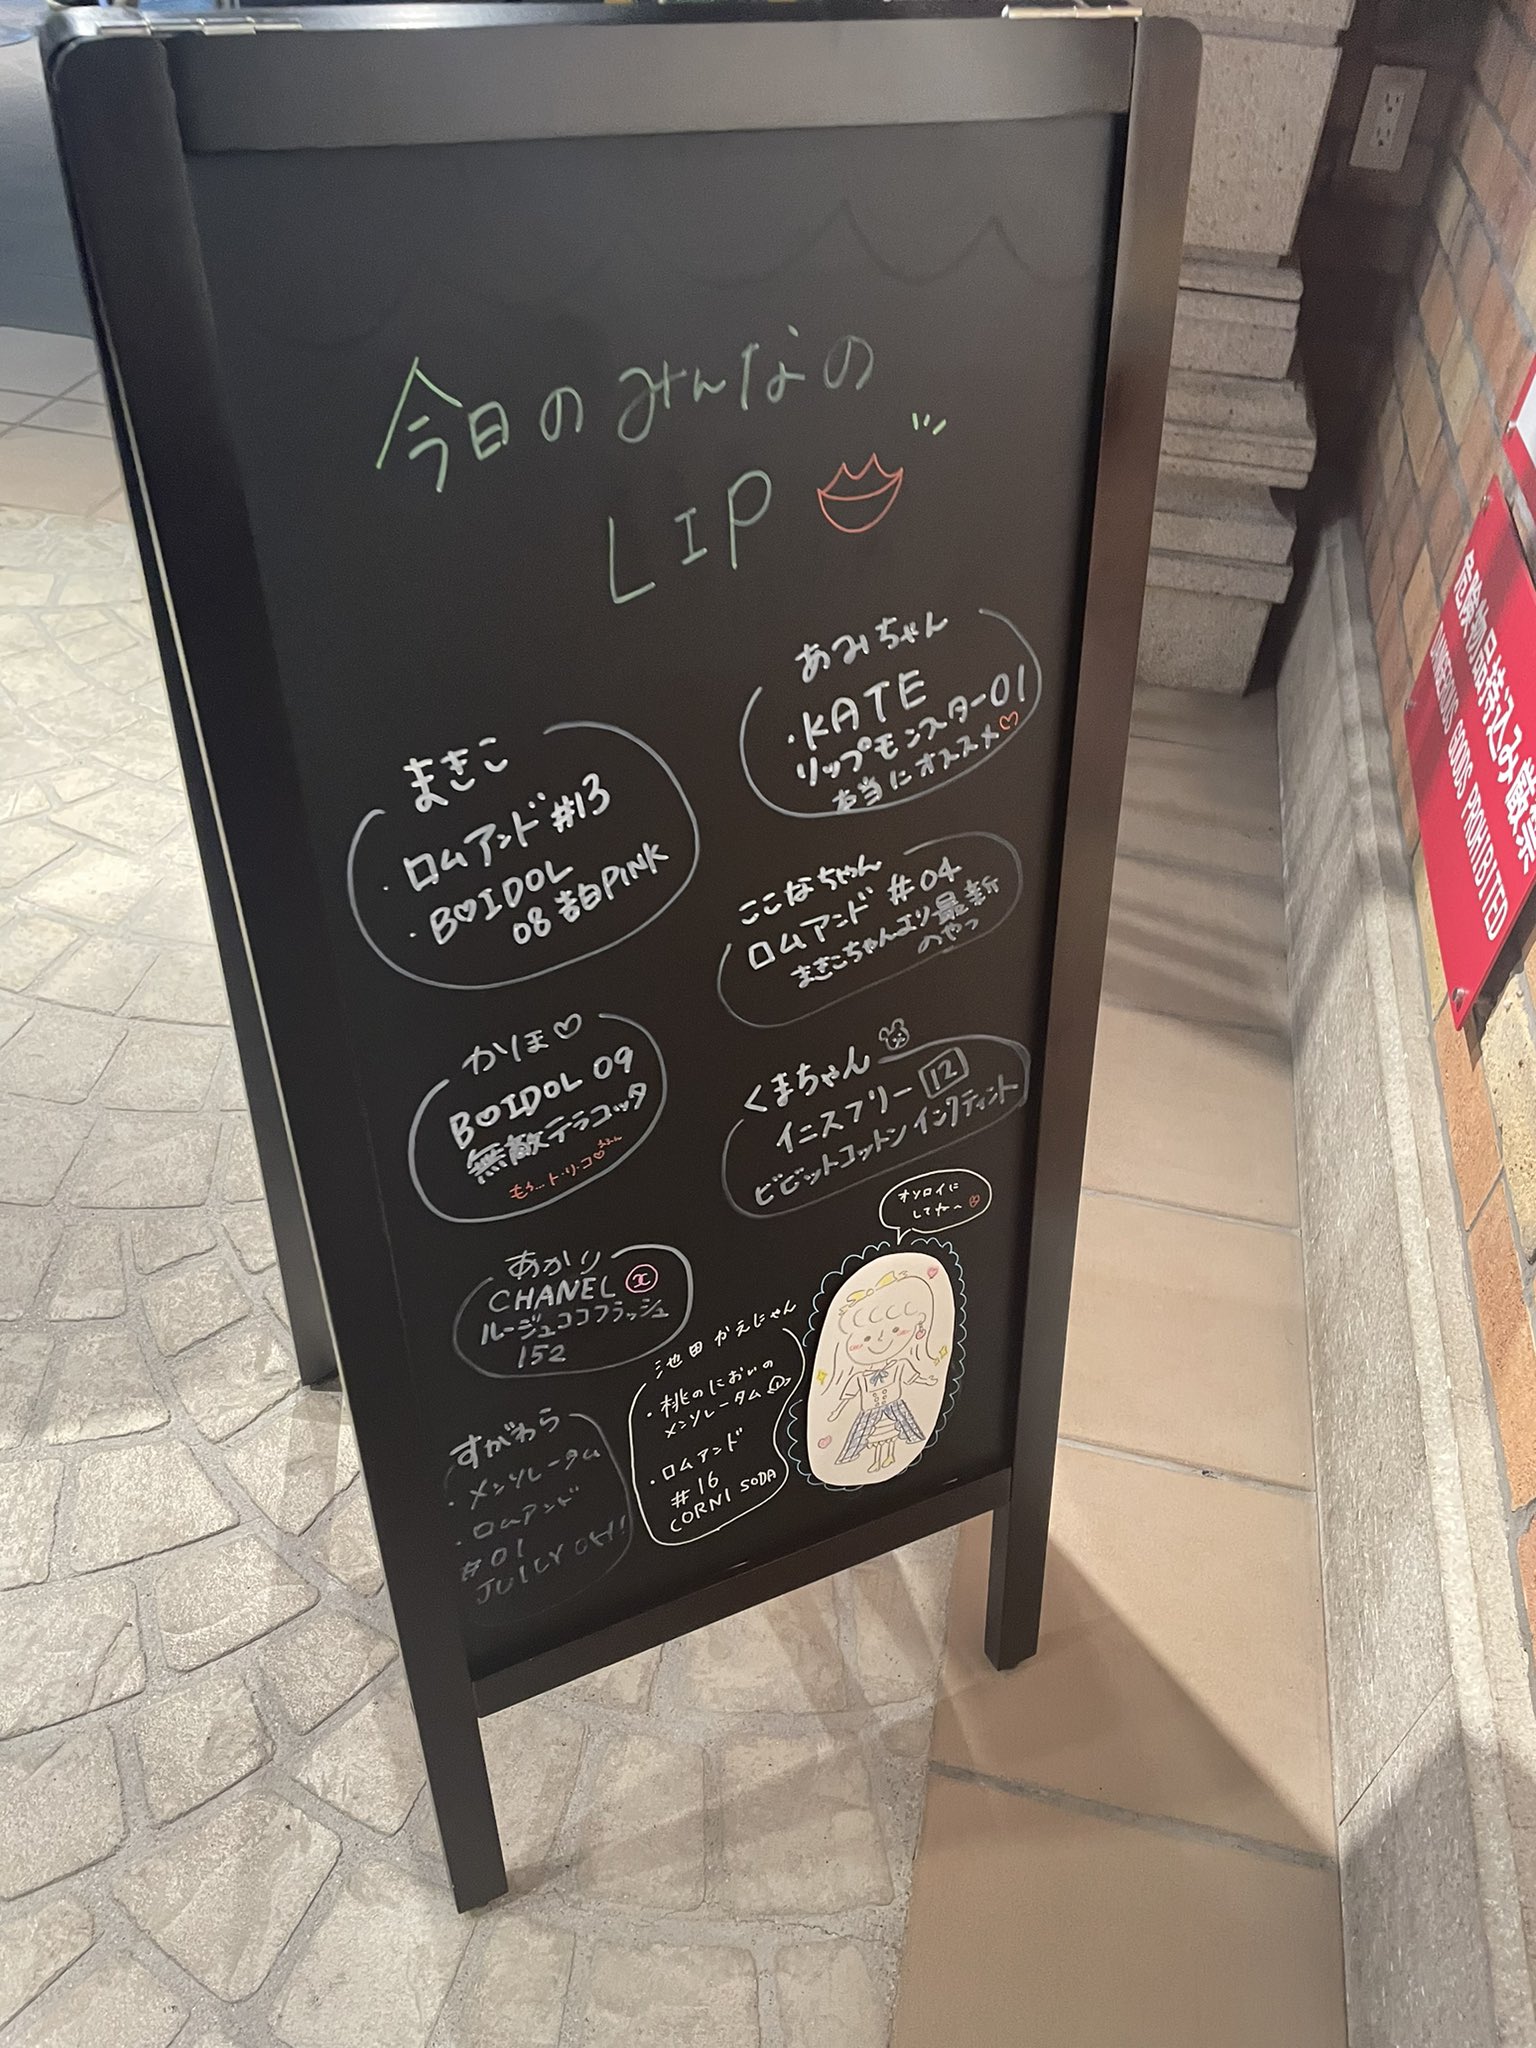 今日のみんなの
LIP
あみちゃん
・KATE
リップモンスター01
本当にオススメ♡
まきこ
・ロムアンド#13
・B♡IDOL
08 告白PINK
ここなちゃん
ロムアンド #04
まきこちゃんより最新
のやつ
かほ♡
B♡IDOL 09
無敵テラコッタ
もう…ト・リ・コ♡
くまちゃん
イニスフリー 12
ビビットコットンインクティント
あかり
CHANEL
ルージュココフラッシュ
152
オソロイに
してね〜
池田 かえにゃん
・桃のにおいの
メンソレータム
・ロムアンド
#16
CORNI SODA
すがわら
・メンソレータム
・ロムアンド
#01
危険物品持込み厳禁
DANGEROUS GOODS PROHIBITED